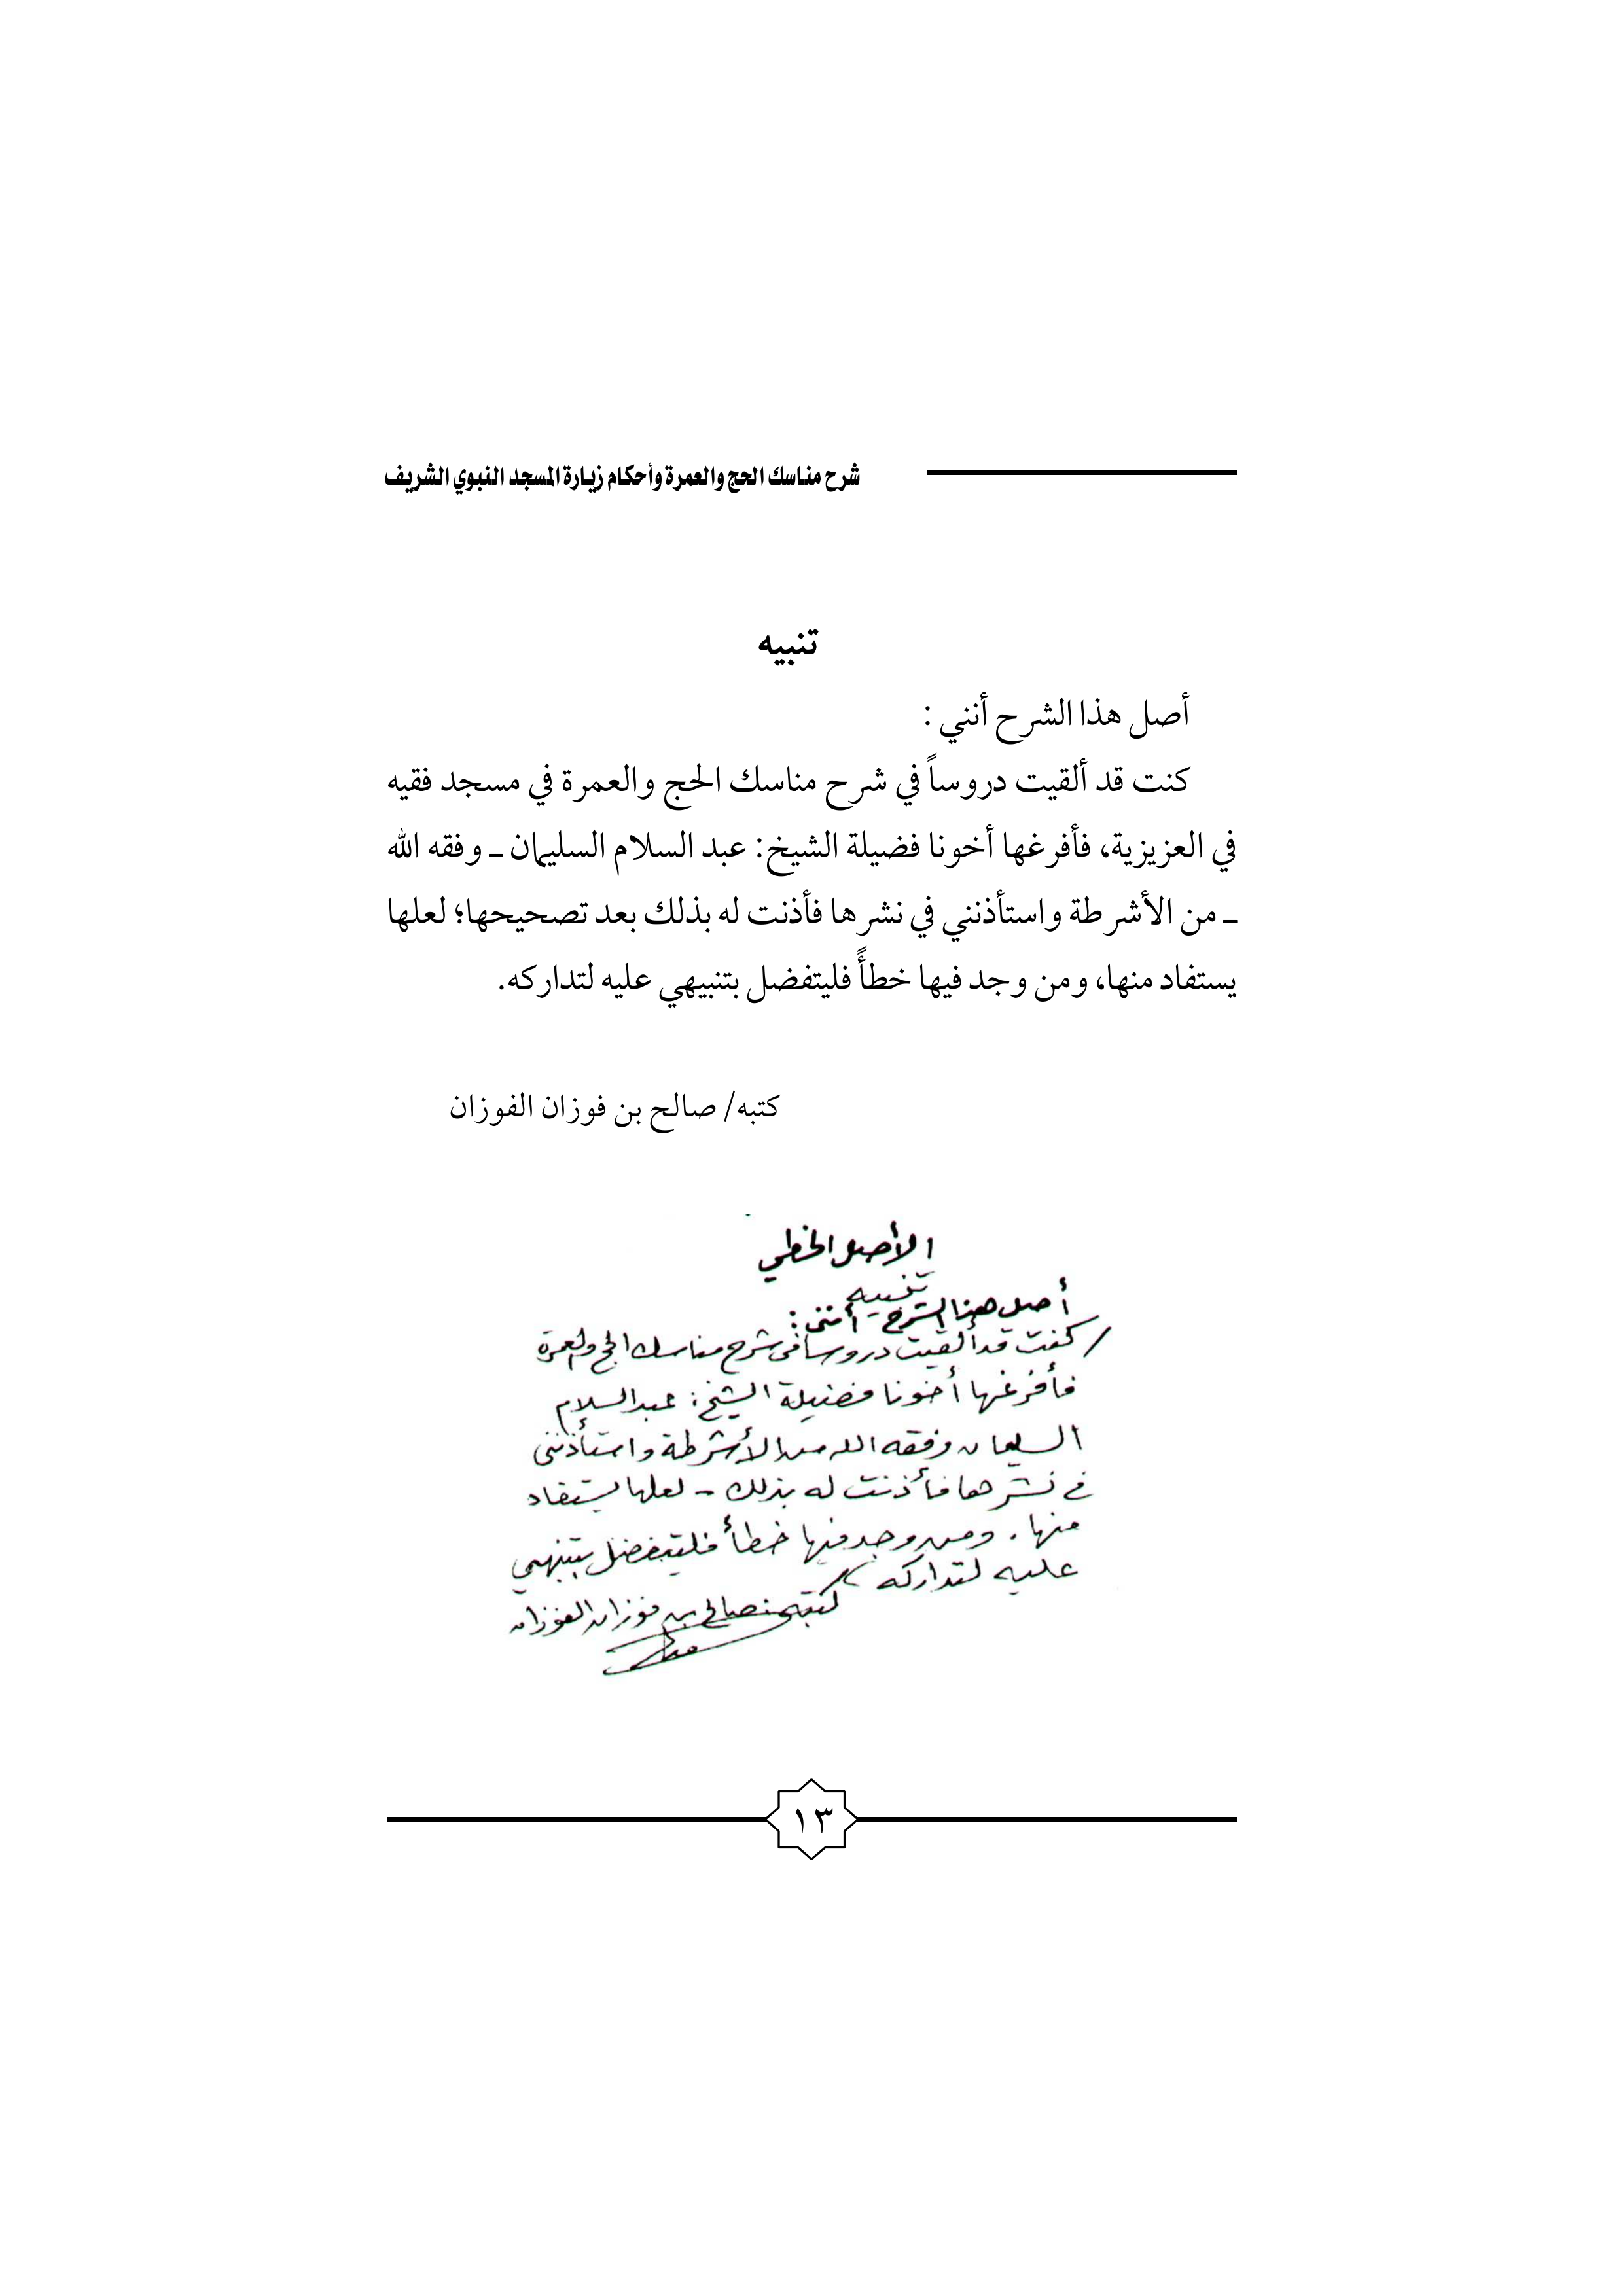 شرح مناسك الحج والعمرة وأحكام زيارة المسجد النبوي الشريف
تنبيه
أصل هذا الشرح أنني :
كنت قد ألقيت دروساً في شرح مناسك الحج والعمرة في مسجد فقيه
في العزيزية، فأفرغها أخونا فضيلة الشيخ: عبد السلام السليمان ـ وفقه الله
ـ من الأشرطة واستأذنني في نشرها فأذنت له بذلك بعد تصحيحها؛ لعلها
يستفاد منها، ومن وجد فيها خطأً فليتفضل بتنبيهي عليه لتداركه.
كتبه/ صالح بن فوزان الفوزان
الأصل الخطي
تنبيه
أصل هذا الشرح - أنني :
كنت قد ألقيت دروسا في شرح مناسك الحج والعمرة
فأفرغها أخونا فضيلة الشيخ : عبدالسلام
السليمان وفقه الله من الأشرطة واستأذنني
في نشرها فأذنت له بذلك - لعلها يستفاد
منها . ومن وجد فيها خطأ فليتفضل بتنبيهي
عليه لتداركه
كتبه صالح بن فوزان الفوزان
١٣